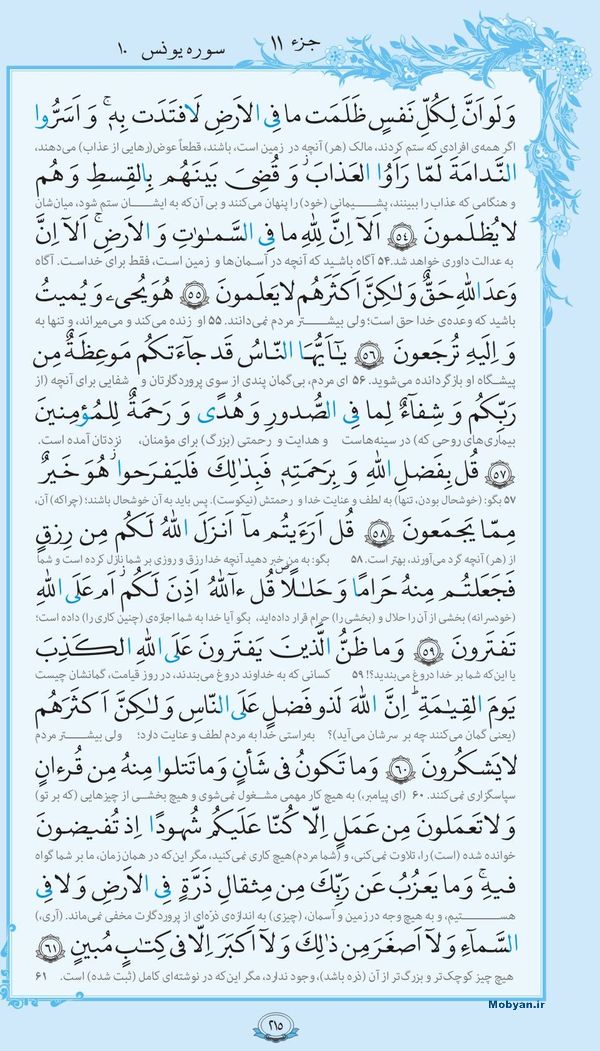 جزء ۱۱
سوره یونس ۱۰
وَلَو اَنَّ لِكُلِّ نَفسٍ ظَلَمَت ما فِی الاَرضِ لَافتَدَت بِهِ ۗ وَ اَسَرُّوا
اگر همه‌ی افرادی که ستم کردند، مالک (هر) آنچه در زمین است، باشند، قطعاً عوض(رهایی از عذاب) می‌دهند،
النَّدامَةَ لَمّا رَاَوُا العَذابَ ۖ وَ قُضِیَ بَینَهُم بِالقِسطِ وَ هُم
و هنگامی که عذاب را ببینند، پشیمانی (خود) را پنهان می‌کنند و بی آن‌که به ایشان ستم شود، میان‌شان
لایُظلَمونَ ﴿۵٤﴾ اَلآ اِنَّ لِلّٰهِ ما فِی السَّمٰوٰتِ وَ الاَرضِ ۗ اَلآ اِنَّ
به عدالت داوری خواهد شد. ۵۴ آگاه باشید که آنچه در آسمان‌ها و زمین است، فقط برای خداست. آگاه
وَعدَ اللّٰهِ حَقٌّ وَلٰكِنَّ اَكثَرَهُم لایَعلَمونَ ﴿۵۵﴾ هُوَ یُحیٖ وَ یُمیتُ
باشید که وعده‌ی خدا حق است؛ ولی بیشتر مردم نمی‌دانند. ۵۵ او زنده می‌کند و می‌میراند، و تنها به
وَ اِلَیهِ تُرجَعونَ ﴿۵۶﴾ یٰٓاَیُّهَا النّاسُ قَد جآءَتكُم مَوعِظَةٌ مِن
پیشگاه او بازگردانده می‌شوید. ۵۶ ای مردم، بی‌گمان پندی از سوی پروردگارتان و شفایی برای آنچه (از
رَبِّكُم وَ شِفآءٌ لِما فِی الصُّدورِ وَ هُدًی وَ رَحمَةٌ لِلمُؤمِنینَ
بیماری‌های روحی که) در سینه‌هاست و هدایت و رحمتی (بزرگ) برای مؤمنان، نزدتان آمده است.
﴿۵۷﴾ قُل بِفَضلِ اللّٰهِ وَ بِرَحمَتِهٖ فَبِذٰلِكَ فَلیَفرَحوا هُوَ خَیرٌ
۵۷ بگو: (خوشحال بودن، تنها) به لطف و عنایت خدا و رحمتش (نیکوست). پس باید به آن خوشحال باشند؛ (چراکه) آن،
مِمّا یَجمَعونَ ﴿۵۸﴾ قُل اَرَءَیتُم مآ اَنزَلَ اللّٰهُ لَكُم مِن رِزقٍ
از (هر) آنچه گرد می‌آورند، بهتر است. ۵۸ بگو: به من خبر دهید آنچه خدا رزق و روزی بر شما نازل کرده است و شما
فَجَعَلتُم مِنهُ حَرامًا وَ حَلٰلًا قُل ءآللّٰهُ اَذِنَ لَكُم ۖ اَم عَلَی اللّٰهِ
(خودسرانه) بخشی از آن را حلال و (بخشی را) حرام قرار داده‌اید، بگو آیا خدا به شما اجازه‌ی (چنین کاری را) داده است؛
تَفتَرونَ ﴿۵۹﴾ وَ ما ظَنُّ الَّذینَ یَفتَرونَ عَلَی اللّٰهِ الكَذِبَ
یا این‌که شما بر خدا دروغ می‌بندید؟! ۵۹ کسانی که به خداوند دروغ می‌بندند، در روز قیامت، گمانشان چیست
یَومَ القِیٰمَةِ ۗ اِنَّ اللّٰهَ لَذو فَضلٍ عَلَی النّاسِ وَلٰكِنَّ اَكثَرَهُم
(یعنی گمان می‌کنند چه بر سرشان می‌آید)؟ به‌راستی خدا به مردم لطف و عنایت دارد؛ ولی بیشتر مردم
لایَشكُرونَ ﴿۶۰﴾ وَ ما تَكونُ فی شَأنٍ وَ ما تَتلوا مِنهُ مِن قُرءانٍ
سپاسگزاری نمی‌کنند. ۶۰ (ای پیامبر،) به هیچ کار مهمی مشغول نمی‌شوی و هیچ بخشی از چیزهایی (که بر تو)
وَ لا تَعمَلونَ مِن عَمَلٍ اِلّا كُنّا عَلَیكُم شُهودًا اِذ تُفیضونَ
خوانده شده (است) را، تلاوت نمی‌کنی، و (شما مردم) هیچ کاری نمی‌کنید، مگر این‌که در همان زمان، ما بر شما گواه
فیهِ ۚ وَ ما یَعزُبُ عَن رَبِّكَ مِن مِثقالِ ذَرَّةٍ فِی الاَرضِ وَ لا فِی
هستیم، و به هیچ وجه در زمین و آسمان، (چیزی) به اندازه‌ی ذرّه‌ای از پروردگارت مخفی نمی‌ماند. (آری،)
السَّمآءِ وَ لآ اَصغَرَ مِن ذٰلِكَ وَ لآ اَكبَرَ اِلّا فی كِتٰبٍ مُبینٍ ﴿۶۱﴾
هیچ چیز کوچک‌تر و بزرگ‌تر از آن (ذره باشد)، وجود ندارد، مگر این‌که در نوشته‌ای کامل (ثبت شده) است. ۶۱
Mobyan.ir
۲۱۵